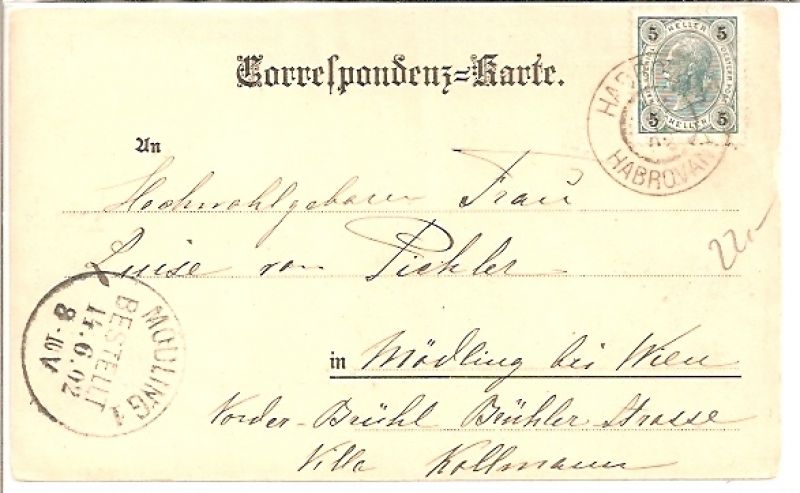 Correspondenz-Karte.
5 HELLER 5
5 HELLER 5
HABROVAN
An
Hochwohlgeboren Frau
Luise von Pichler
in Mödling bei Wien
Vorder-Brühl Brühler Strasse
Villa Kollmann
MÖDLING 1
BESTELLT
14.6.02
8
V
22,-